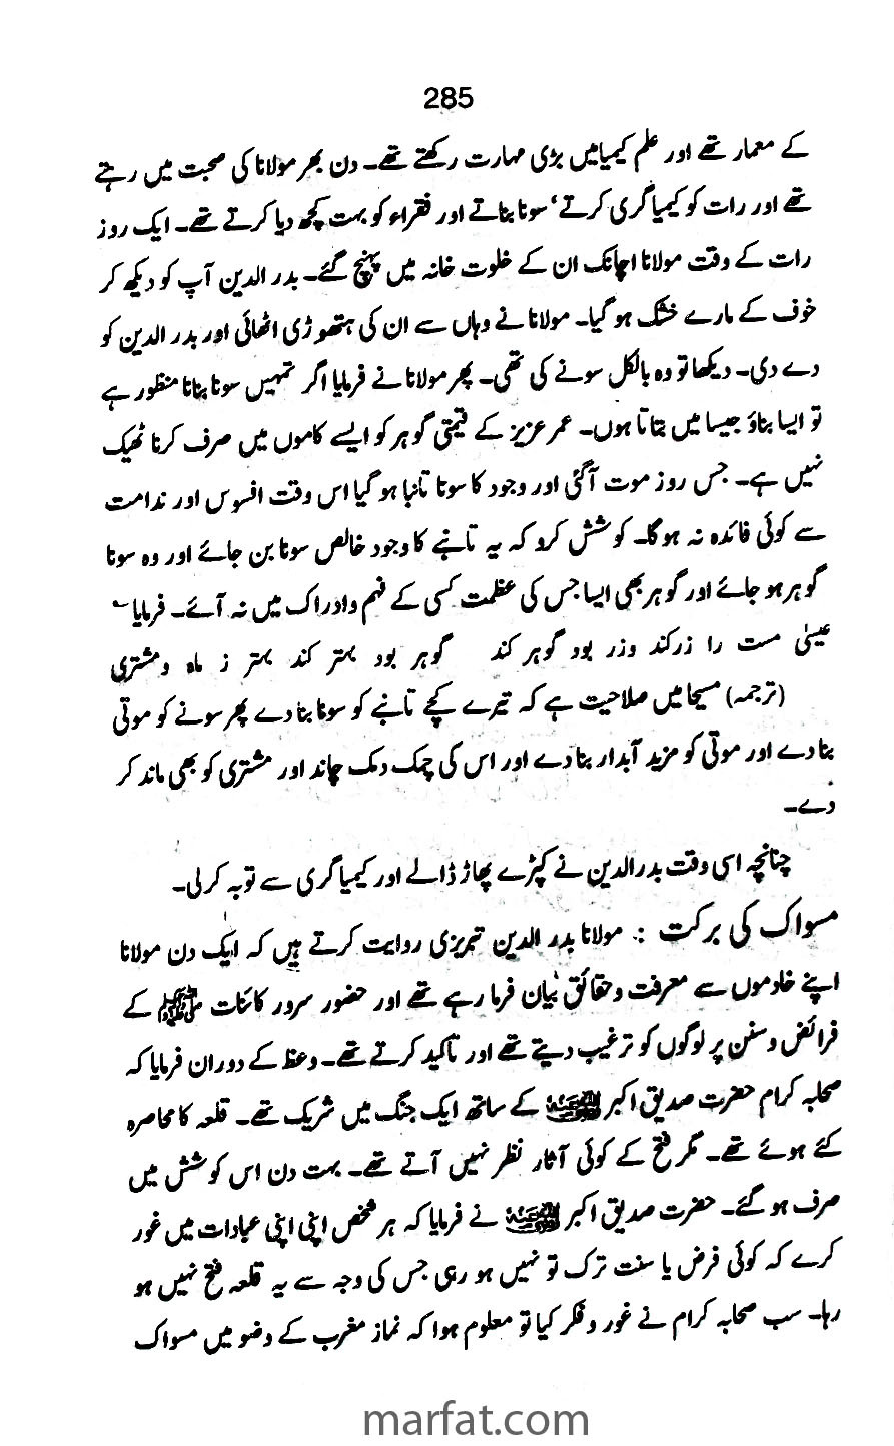 285
کے معمار تھے اور علم کیمیا میں بڑی مہارت رکھتے تھے۔ دن بھر مولانا کی صحبت میں رہتے
تھے اور رات کو کیمیا گری کرتے، سونا بناتے اور فقراء کو بہت کچھ دیا کرتے تھے۔ ایک روز
رات کے وقت مولانا اچانک ان کے خلوت خانہ میں پہنچ گئے۔ بدر الدین آپ کو دیکھ کر
خوف کے مارے خشک ہو گیا۔ مولانا نے وہاں سے ان کی ہتھوڑی اٹھائی اور بدر الدین کو
دے دی۔ دیکھا تو وہ بالکل سونے کی تھی۔ پھر مولانا نے فرمایا اگر تمہیں سونا بنانا منظور ہے
تو ایسا بناؤ جیسا میں بتاتا ہوں۔ عمر عزیز کے قیمتی گوہر کو ایسے کاموں میں صرف کرنا ٹھیک
نہیں ہے۔ جس روز موت آگئی اور وجود کا سونا تانبا ہو گیا اس وقت افسوس اور ندامت
سے کوئی فائدہ نہ ہوگا۔ کوشش کرو کہ یہ تانبے کا وجود خالص سونا بن جائے اور وہ سونا
گوہر ہو جائے اور گوہر بھی ایسا جس کی عظمت کسی کے فہم و ادراک میں نہ آئے۔ فرمایا ؎
عیسیٰ مست را زر کند وزر بود گوہر کند گوہر بود بہتر کند بہتر ز ماہ و مشتری
(ترجمہ) مسیحا میں صلاحیت ہے کہ تیرے کچے تانبے کو سونا بنا دے پھر سونے کو موتی
بنا دے اور موتی کو مزید آبدار بنا دے اور اس کی چمک دمک چاند اور مشتری کو بھی ماند کر
دے۔
چنانچہ اسی وقت بدرالدین نے کپڑے پھاڑ ڈالے اور کیمیا گری سے توبہ کر لی۔
مسواک کی برکت :۔ مولانا بدر الدین تبریزی روایت کرتے ہیں کہ ایک دن مولانا
اپنے خادموں سے معرفت و حقائق بیان فرما رہے تھے اور حضور سرور کائنات ﷺ کے
فرائض و سنن پر لوگوں کو ترغیب دیتے تھے اور تاکید کرتے تھے۔ وعظ کے دوران فرمایا کہ
صحابہ کرام حضرت صدیق اکبر کے ساتھ ایک جنگ میں شریک تھے۔ قلعہ کا محاصرہ
کئے ہوئے تھے۔ مگر فتح کے کوئی آثار نظر نہیں آتے تھے۔ بہت دن اس کوشش میں
صرف ہو گئے۔ حضرت صدیق اکبر نے فرمایا کہ ہر شخص اپنی اپنی عبادات میں غور
کرے کہ کوئی فرض یا سنت ترک تو نہیں ہو رہی جس کی وجہ سے یہ قلعہ فتح نہیں ہو
رہا۔ سب صحابہ کرام نے غور و فکر کیا تو معلوم ہوا کہ نماز مغرب کے وضو میں مسواک
marfat.com